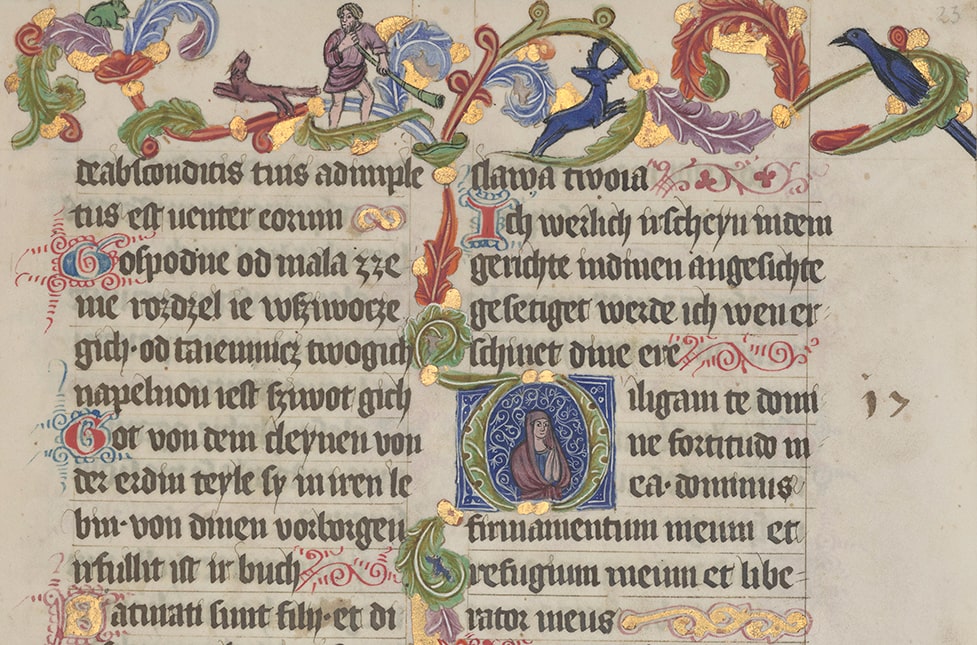 23
deabsconditis tuis adimple
tus est uenter eorum
Gospodne od mala zze
me rozdzel ie wsziwocze
gich· od taiemnicz twogich
napelnion iest sziwot gich
Got von dem cleynen von
der erdin teyle sy in iren le
bin· von dinen vorborgen
irfullit ist ir buch
Saturati sunt filij· et di
slawa twoia
Ich werlich irscheyn in dem
gerichte in dinen angesichte
gesetiget werde ich wen er
schinet dine ere
Diligam te domi
ne fortitudo m
ea· dominus
firmamentum meum et
refugium meum et libe-
rator meus
17